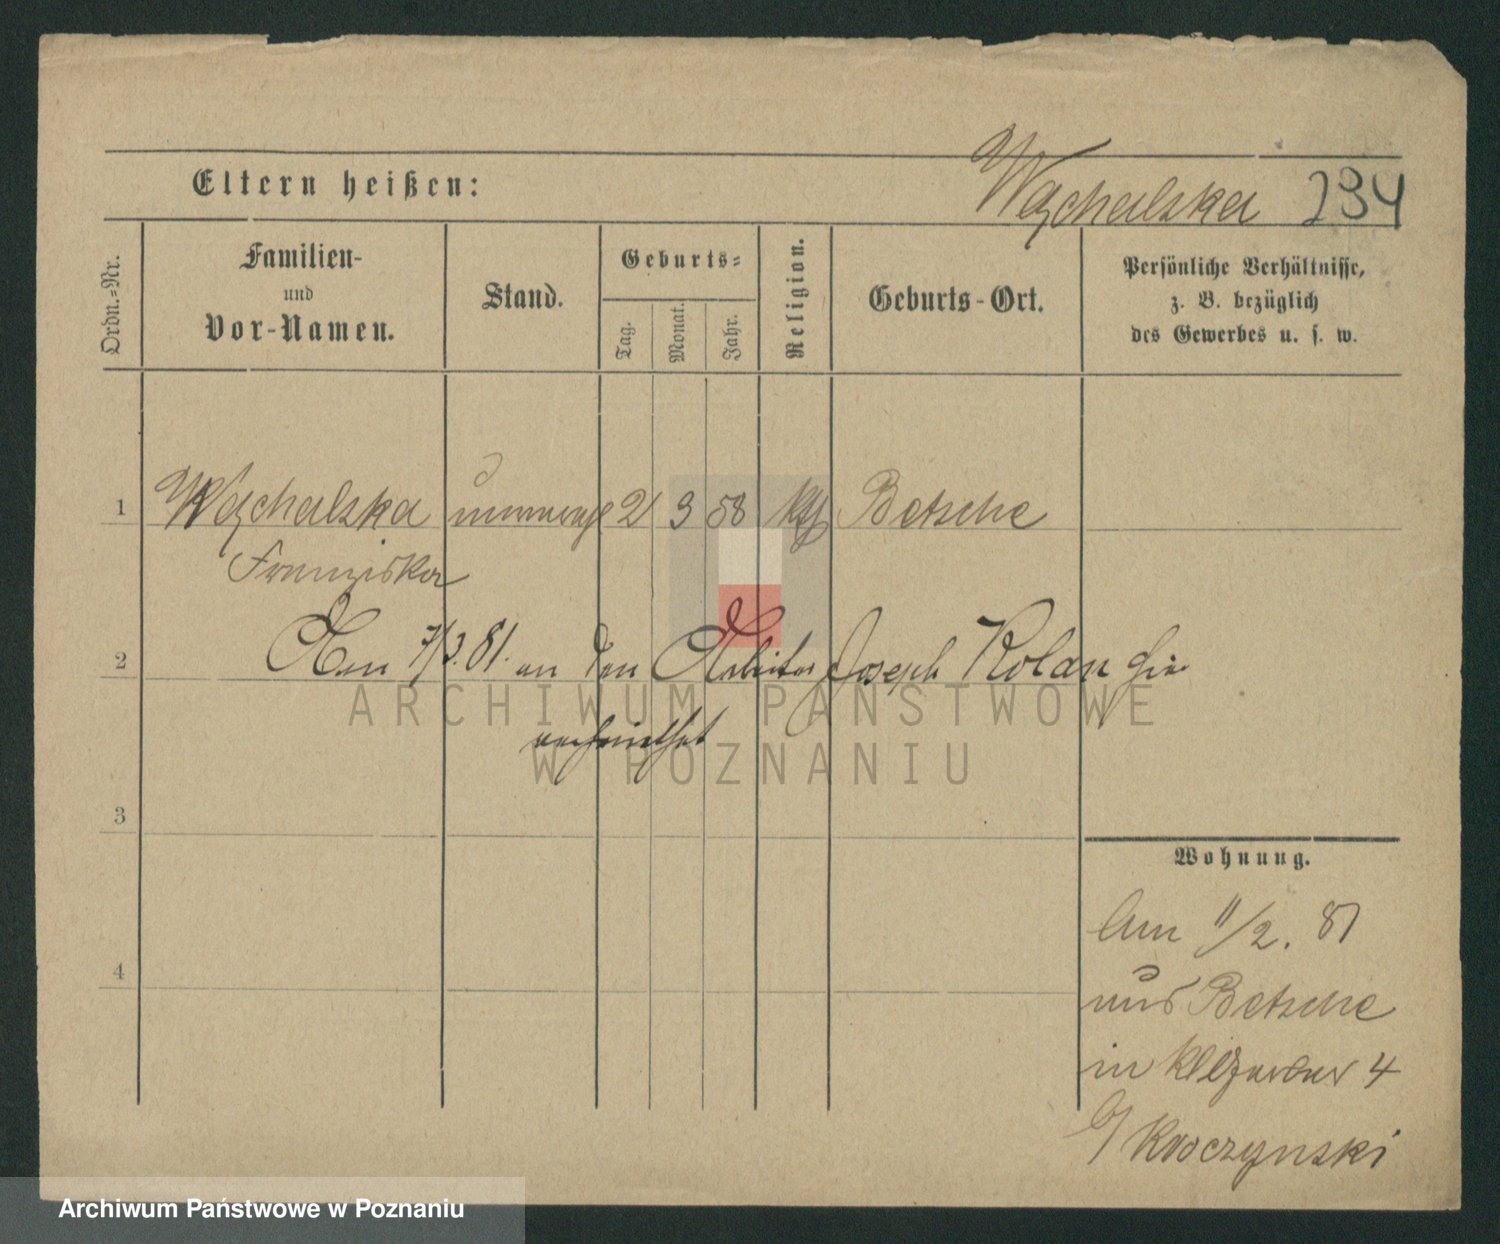 Eltern heißen:
Wychalska 234
Ordn.-Nr.
Familien-
und
Vor-Namen.
Stand.
Geburts-
Tag.
Monat.
Jahr.
Religion.
Geburts-Ort.
Persönliche Verhältnisse,
z. B. bezüglich
des Gewerbes u. s. w.
1 Wychalska unverehl 2 3 58 kth Betsche
Franziska
2 Den 7/3. 81. an den Arbeiter Joseph Kolan hier
verheirathet
3
Wohnung.
Am 11/2. 81
aus Betsche
4
in Kl Gerber 4
b/ Kroczynski
ARCHIWUM PAŃSTWOWE
W POZNANIU
Archiwum Państwowe w Poznaniu